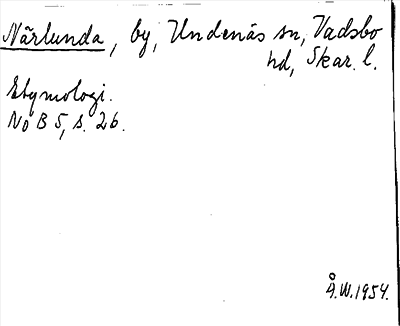 Närlunda, by, Undenäs sn, Vadsbo
hd, Skar. l.
Etymologi.
NoB 5, s. 26.
Å.W. 1954.